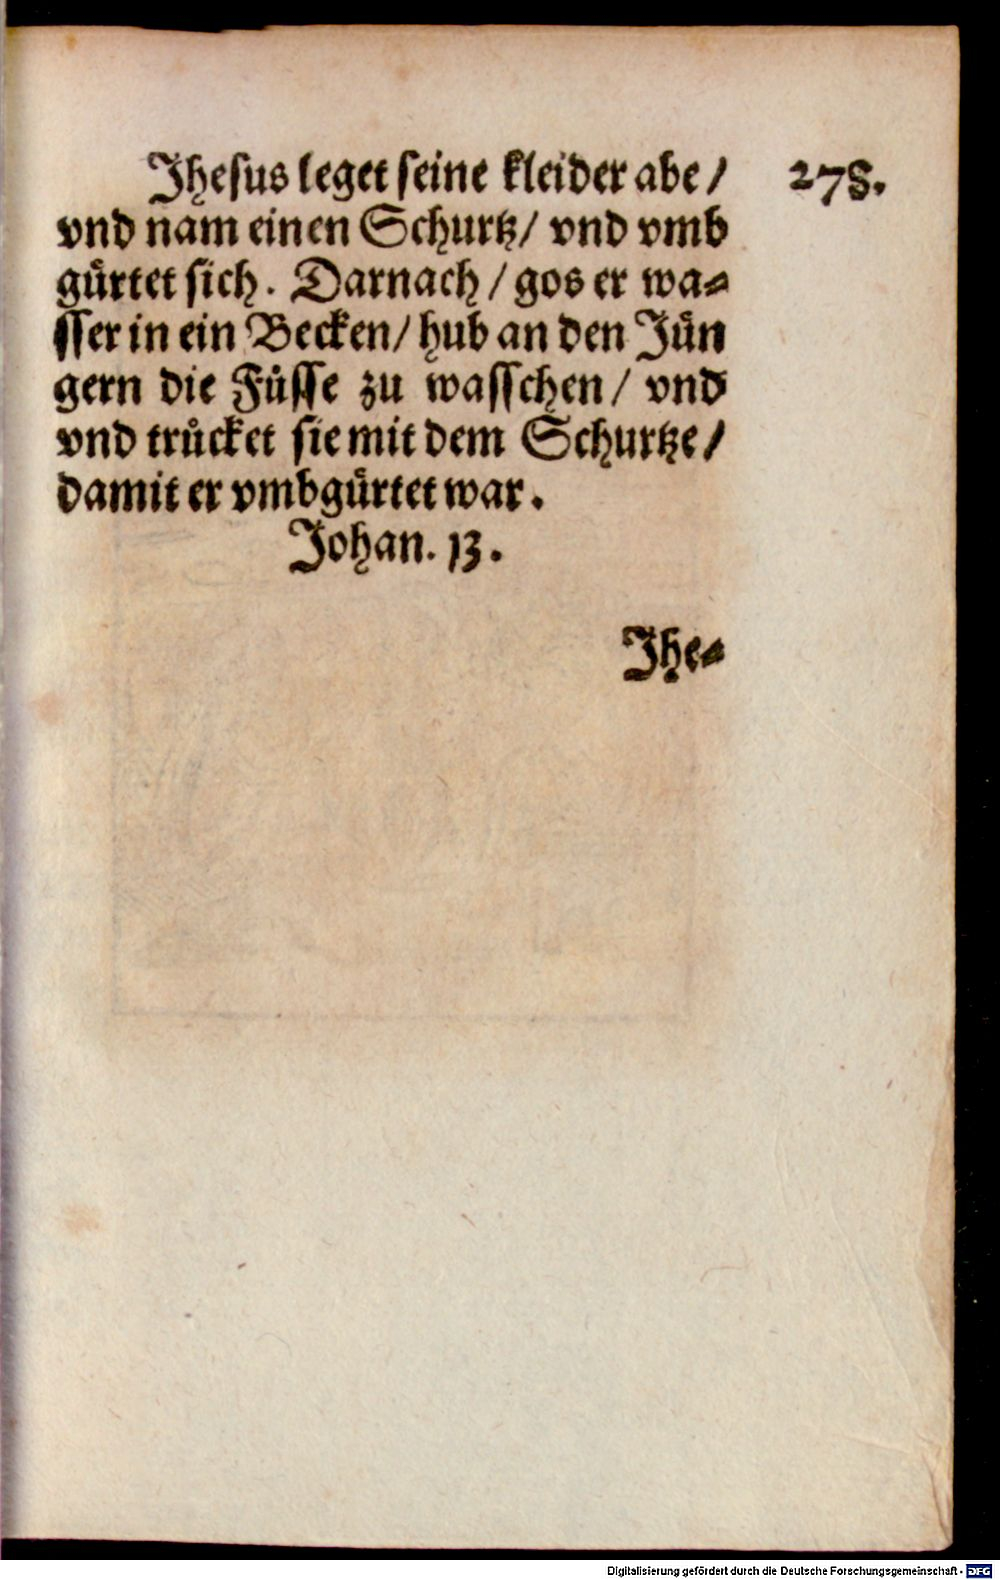 Jhesus leget seine kleider abe / 278.
vnd nam einen Schurtz / vnd vmb
gürtet sich. Darnach / gos er wa⸗
sser in ein Becken / hub an den Jün
gern die Füsse zu wasschen / vnd
vnd trücket sie mit dem Schurtze /
damit er vmbgürtet war.
Johan. 13.
Jhe⸗
Digitalisierung gefördert durch die Deutsche Forschungsgemeinschaft - DFG